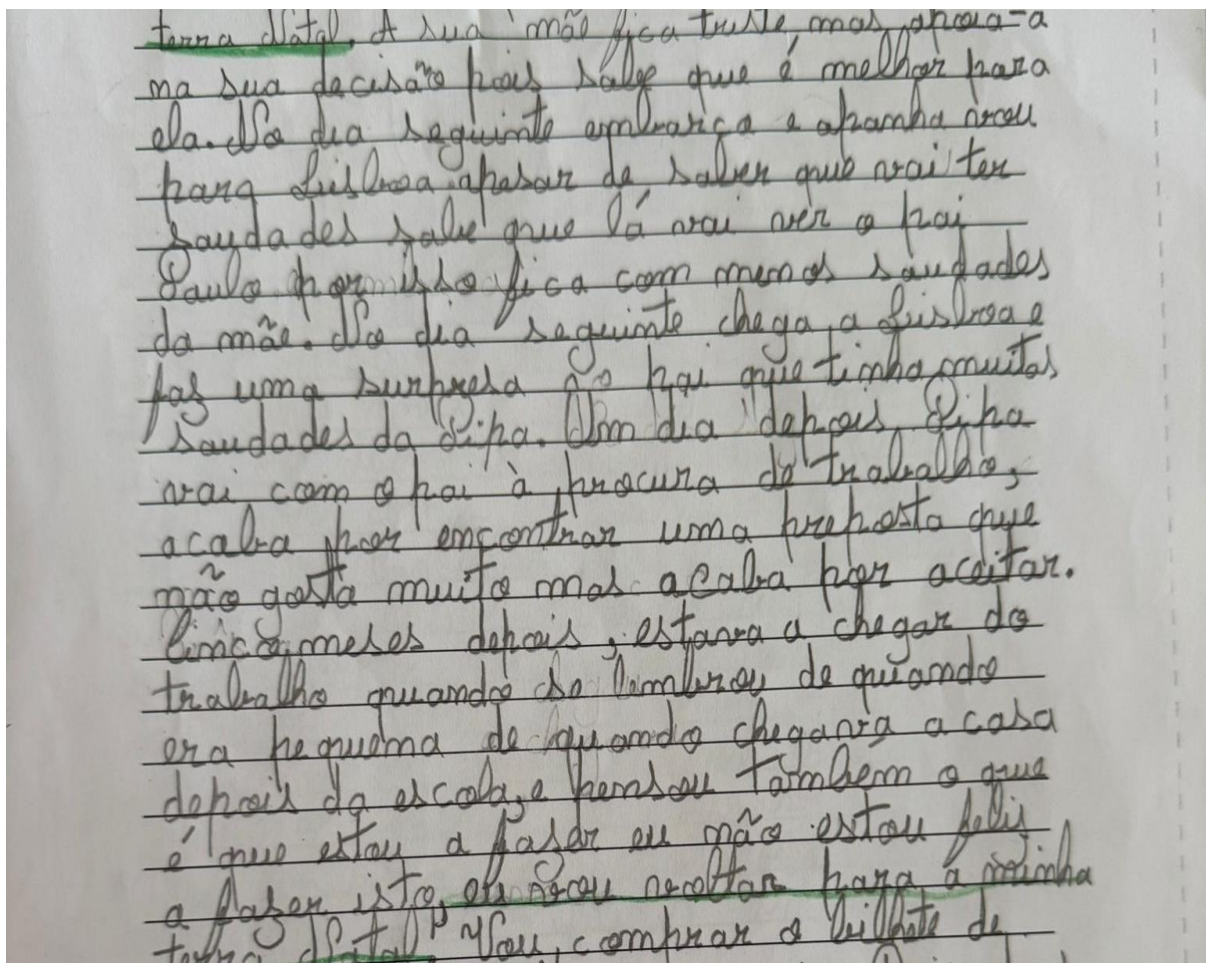 terra Natal. A sua mãe fica triste, mas apoia-a
na sua decisão pois sabe que é melhor para
ela. No dia seguinte embarca e apanha
para Lisboa apesar de saber que vai ter
saudades sabe que lá vai ver o pai
Paulo por isso fica com menos saudades
da mãe. No dia seguinte chega a Lisboa e
fas uma surpresa ao pai que tinha muitas
saudades da Pipa. Um dia depois Pipa
vai com o pai à procura de trabalho,
acaba por encontrar uma preposta que
não gosta muito mas acaba por aceitar.
Cinco meses depois, estava a chegar do
trabalho quando se lembrou de quando
era pequena de quando chegava a casa
depois da escola, e pensou tambem o que
é que estou a faser eu não estou felis
a faser isto, eu vou voltar para a minha
terra Natal" "Vou comprar o bilhete de